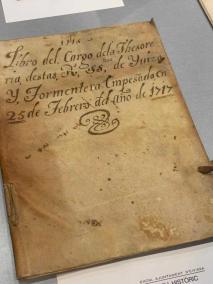 1715
Libro del Cargo dela Thesore
ria destas R.s Ss.nas de Yviza
Y Formentera Empesada en
25 de Febrero del Año de 1717
ARXIU HISTÒRIC